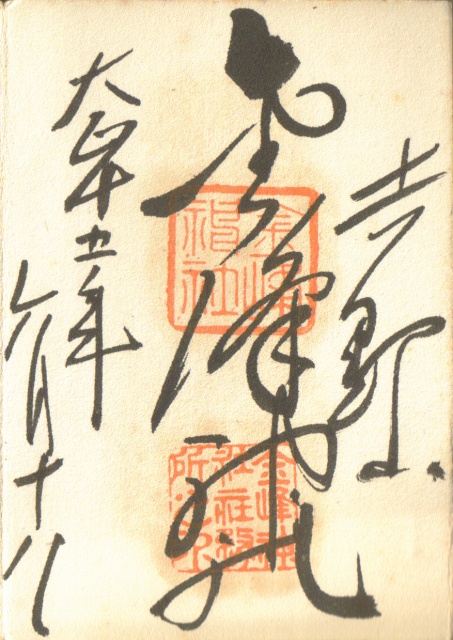 吉野山
金峰神社
大正十五年
六月十八
金峰
神社
金峰神
社社務
所之印